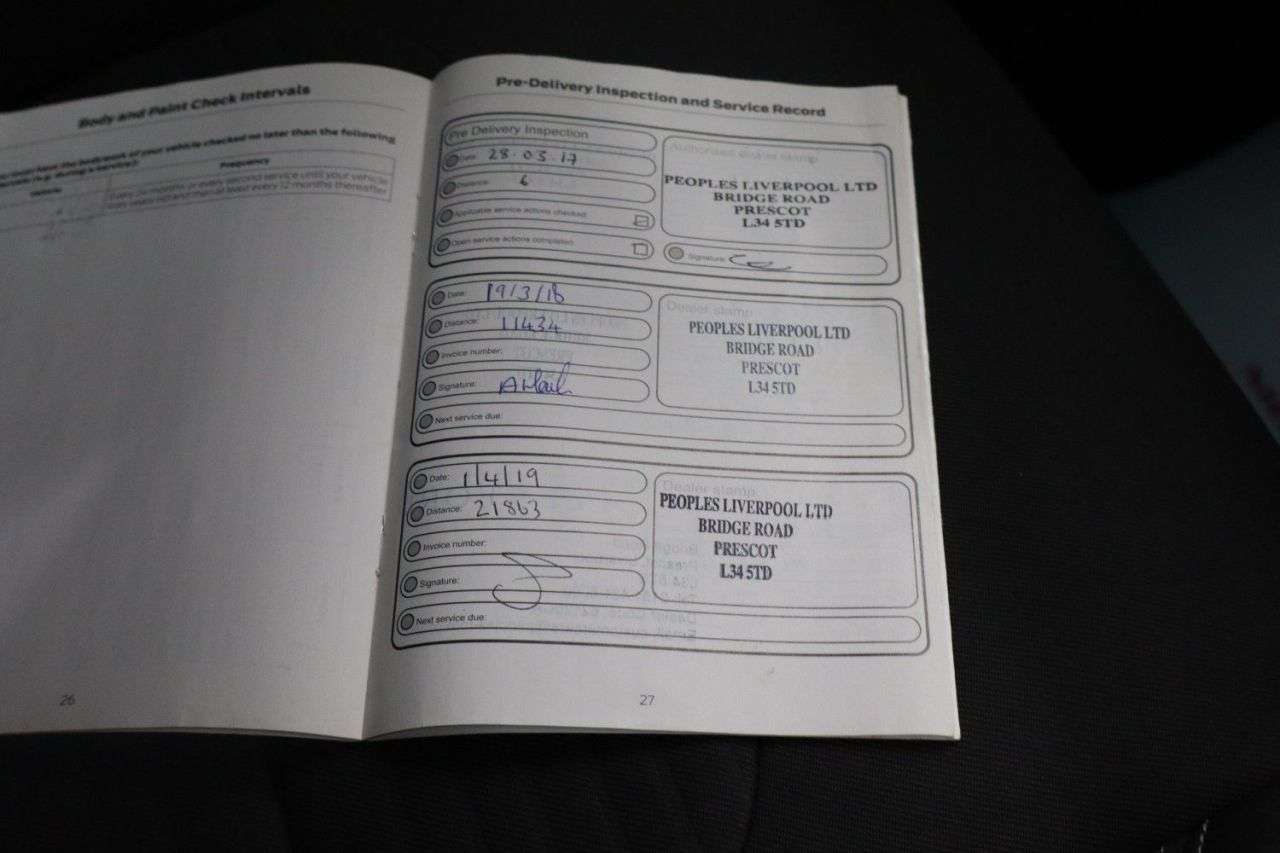 Body and Paint Check Intervals
must have the bodywork of your vehicle checked no later than the following
(e.g. during a service):
Vehicle
Frequency
Every 24 months or every second service until your vehicle
and at least every 12 months thereafter
26
Pre-Delivery Inspection and Service Record
Pre Delivery Inspection
Date: 28.03.17
Distance: 6
Applicable service actions checked
Open service actions completed
Authorised dealer stamp
PEOPLES LIVERPOOL LTD
BRIDGE ROAD
PRESCOT
L34 5TD
Signature:
Date: 19/3/18
Distance: 11434
Invoice number:
Signature:
Next service due:
Dealer stamp
PEOPLES LIVERPOOL LTD
BRIDGE ROAD
PRESCOT
L34 5TD
Date: 1/4/19
Distance: 21863
Invoice number:
Signature:
Next service due:
Dealer stamp
PEOPLES LIVERPOOL LTD
BRIDGE ROAD
PRESCOT
L34 5TD
27